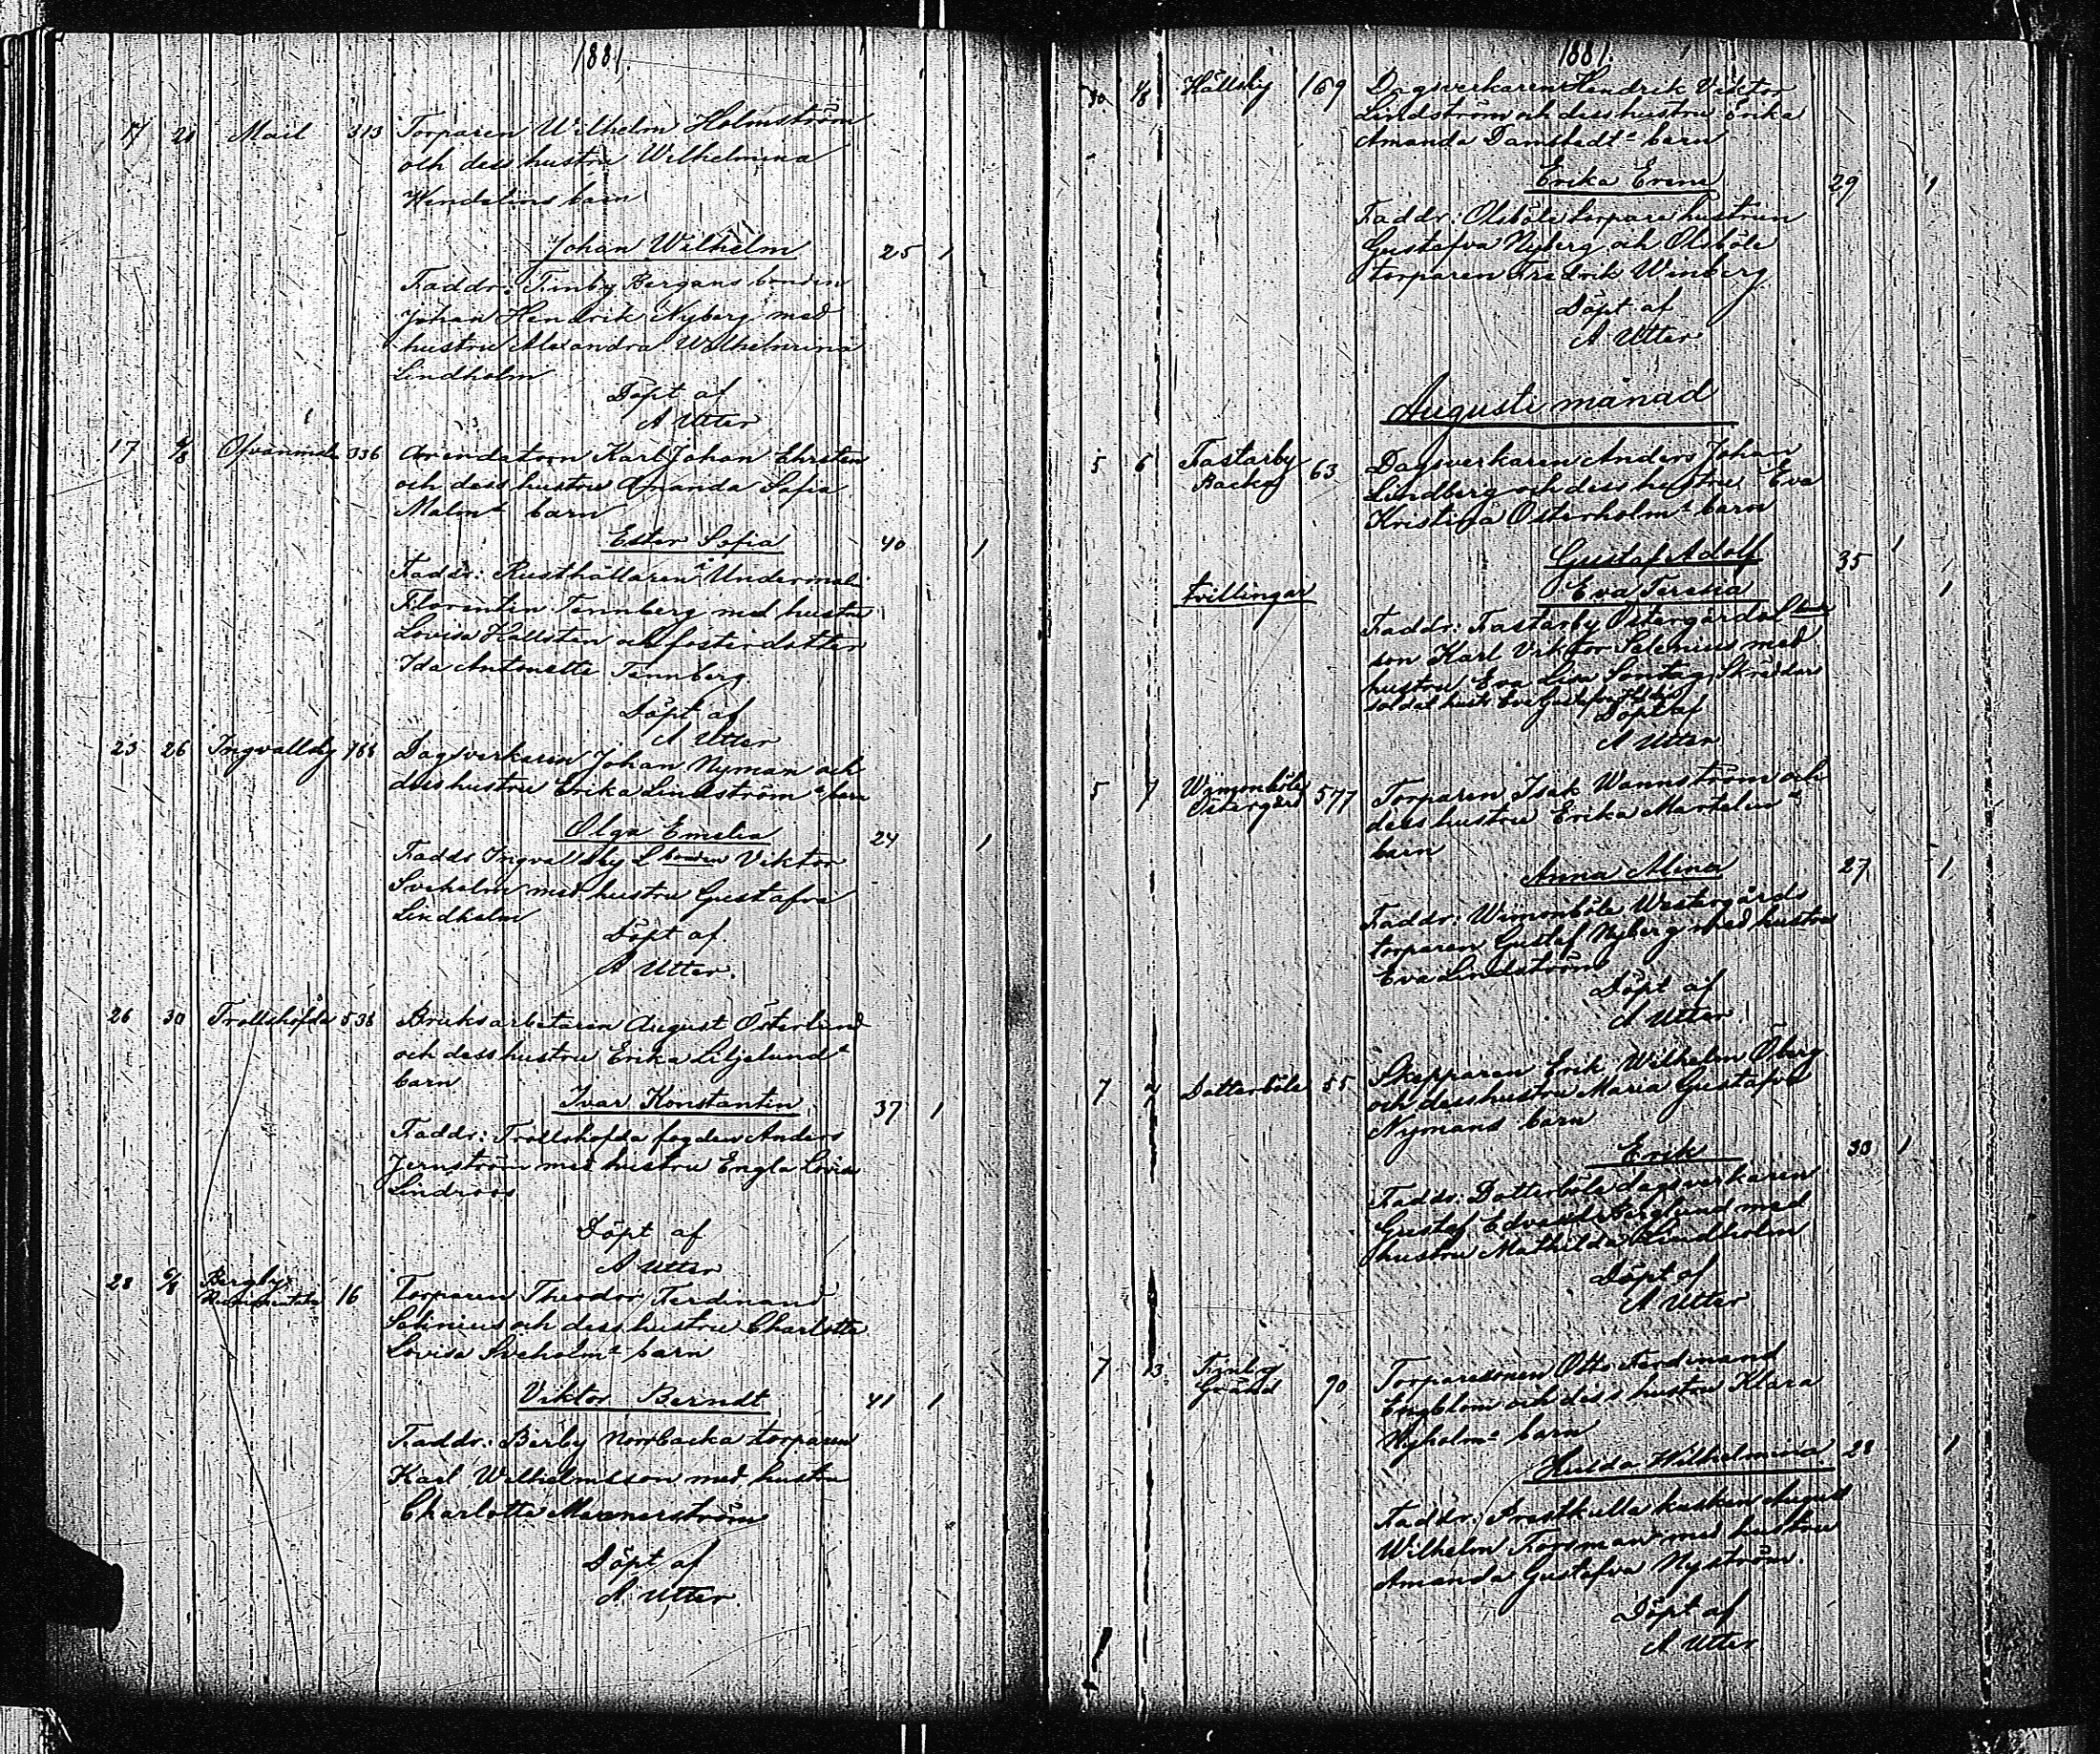 1881
17 21 Mail 313 Torparen Wilhelm Holmström
och dess hustru Wilhelmina
Wendelins barn
Johan Wilhelm 25 1
Faddr: Finby Bergans bonden
Johan Hendrik Nyberg med
hustru Alexandra Wilhelmina
Lindholm
Döpt af
A Utter
17 6/8 Ofvanmalm 336 Arendatorn Karl Johan Ehrstén
och dess hustru Amanda Sofia
Malms barn
Ester Sofia 40 1
Faddr: Rusthållaren i Undermalm
Florentin Tennberg med hustru
Lovisa Kallstén och fosterdotter
Ida Antonette Tennberg
Döpt af
A Utter
23 26 Ingvallsby 188 Dagsverkaren Johan Nyman och
dess hustru Erika Lindströms barn
Olga Emelia 24 1
Faddr Ingvallsby L bonden Viktor
Sveholm med hustru Gustafva
Lindholm
Döpt af
A Utter.
26 30 Trollshofda 538 Bruksarbetaren August Österlund
och dess hustru Erika Liljelunds
barn
Ivar Konstantin 37 1
Faddr: Trollshofda fogden Anders
Jernström med hustru Engla Lovisa
Lindroos
Döpt af
A Utter
28 6/8 Bergby 16 Torparen Theodor Ferdinand
Selinius och dess hustru Charlotta
Lovisa Sveholms barn
Viktor Berndt 41 1
Faddr: Bärby Norrbacka torparen
Karl Wilhelmsson med hustru
Charlotta Marenerström
Döpt af
A Utter
1881.
30 1/8 Hällsby 169 Dagsverkaren Hendrik Viktor
Lindström och dess hustru Erika
Amanda Damstedts barn
Erika Erene 29 1
Faddr: Olsböle torpare hustrun
Gustafva Nyberg och Olsböle
torparen Fredrik Winberg
Döpt af
A Utter
Augusti månad
5 6 Fastarby 63 Dagsverkaren Anders Johan
Backa Lindberg och dess hustru Eva
Kristina Österholms barn
Gustaf Adolf 35 1
tvillingar Eva Teresia 1
Faddr: Fastarby Östergårds L bonde
son Karl Viktor Selenius med
hustru Eva Lisa Sontag, Skräddar
soldat hustr Eva Gustafva
Döpt af
A Utter
5 7 Wimonböle 577 Torparen Isak Wannström och
Östergård dess hustru Erika Martelins
barn
Anna Alina 27 1
Faddr: Wimonböle Westergårds
torparen Gustaf Nyberg med hustru
Eva Lindström
Döpt af
A Utter
7 Dalterböle 55 Skepparen Erik Wilhelm Öberg
och dess hustru Maria Gustafva
Nymans barn
Erik 30 1
Faddr: Dotterböle dagsverkaren
Gustaf Edvard Berglund med
hustru Mathilda Lindholm
Döpt af
A Utter
7 13 Finby 90 Torparesonen Otto Ferdinand
Gränd Engblom och dess hustru Klara
Nyholms barn
Hulda Wilhelmina 28 1
Faddr: Prestkulla kusken August
Wilhelm Forsman med hustru
Amanda Gustafva Nyström.
Döpt af
A Utter